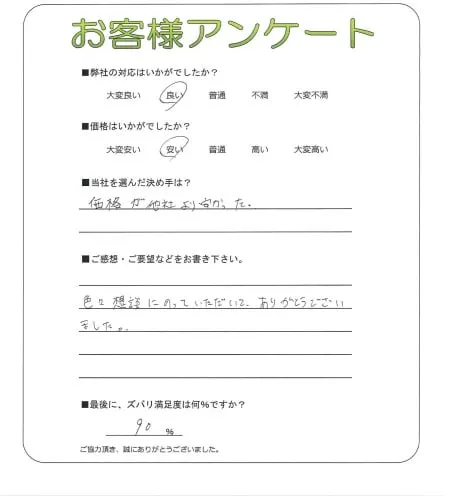 お客様アンケート
■弊社の対応はいかがでしたか？
大変良い 良い 普通 不満 大変不満
■価格はいかがでしたか？
大変安い 安い 普通 高い 大変高い
■当社を選んだ決め手は？
価格が他社より安かった。
■ご感想・ご要望などをお書き下さい。
色々想談にのっていただいて、ありがとうござい
ました。
■最後に、ズバリ満足度は何%ですか？
90 %
ご協力頂き、誠にありがとうございました。